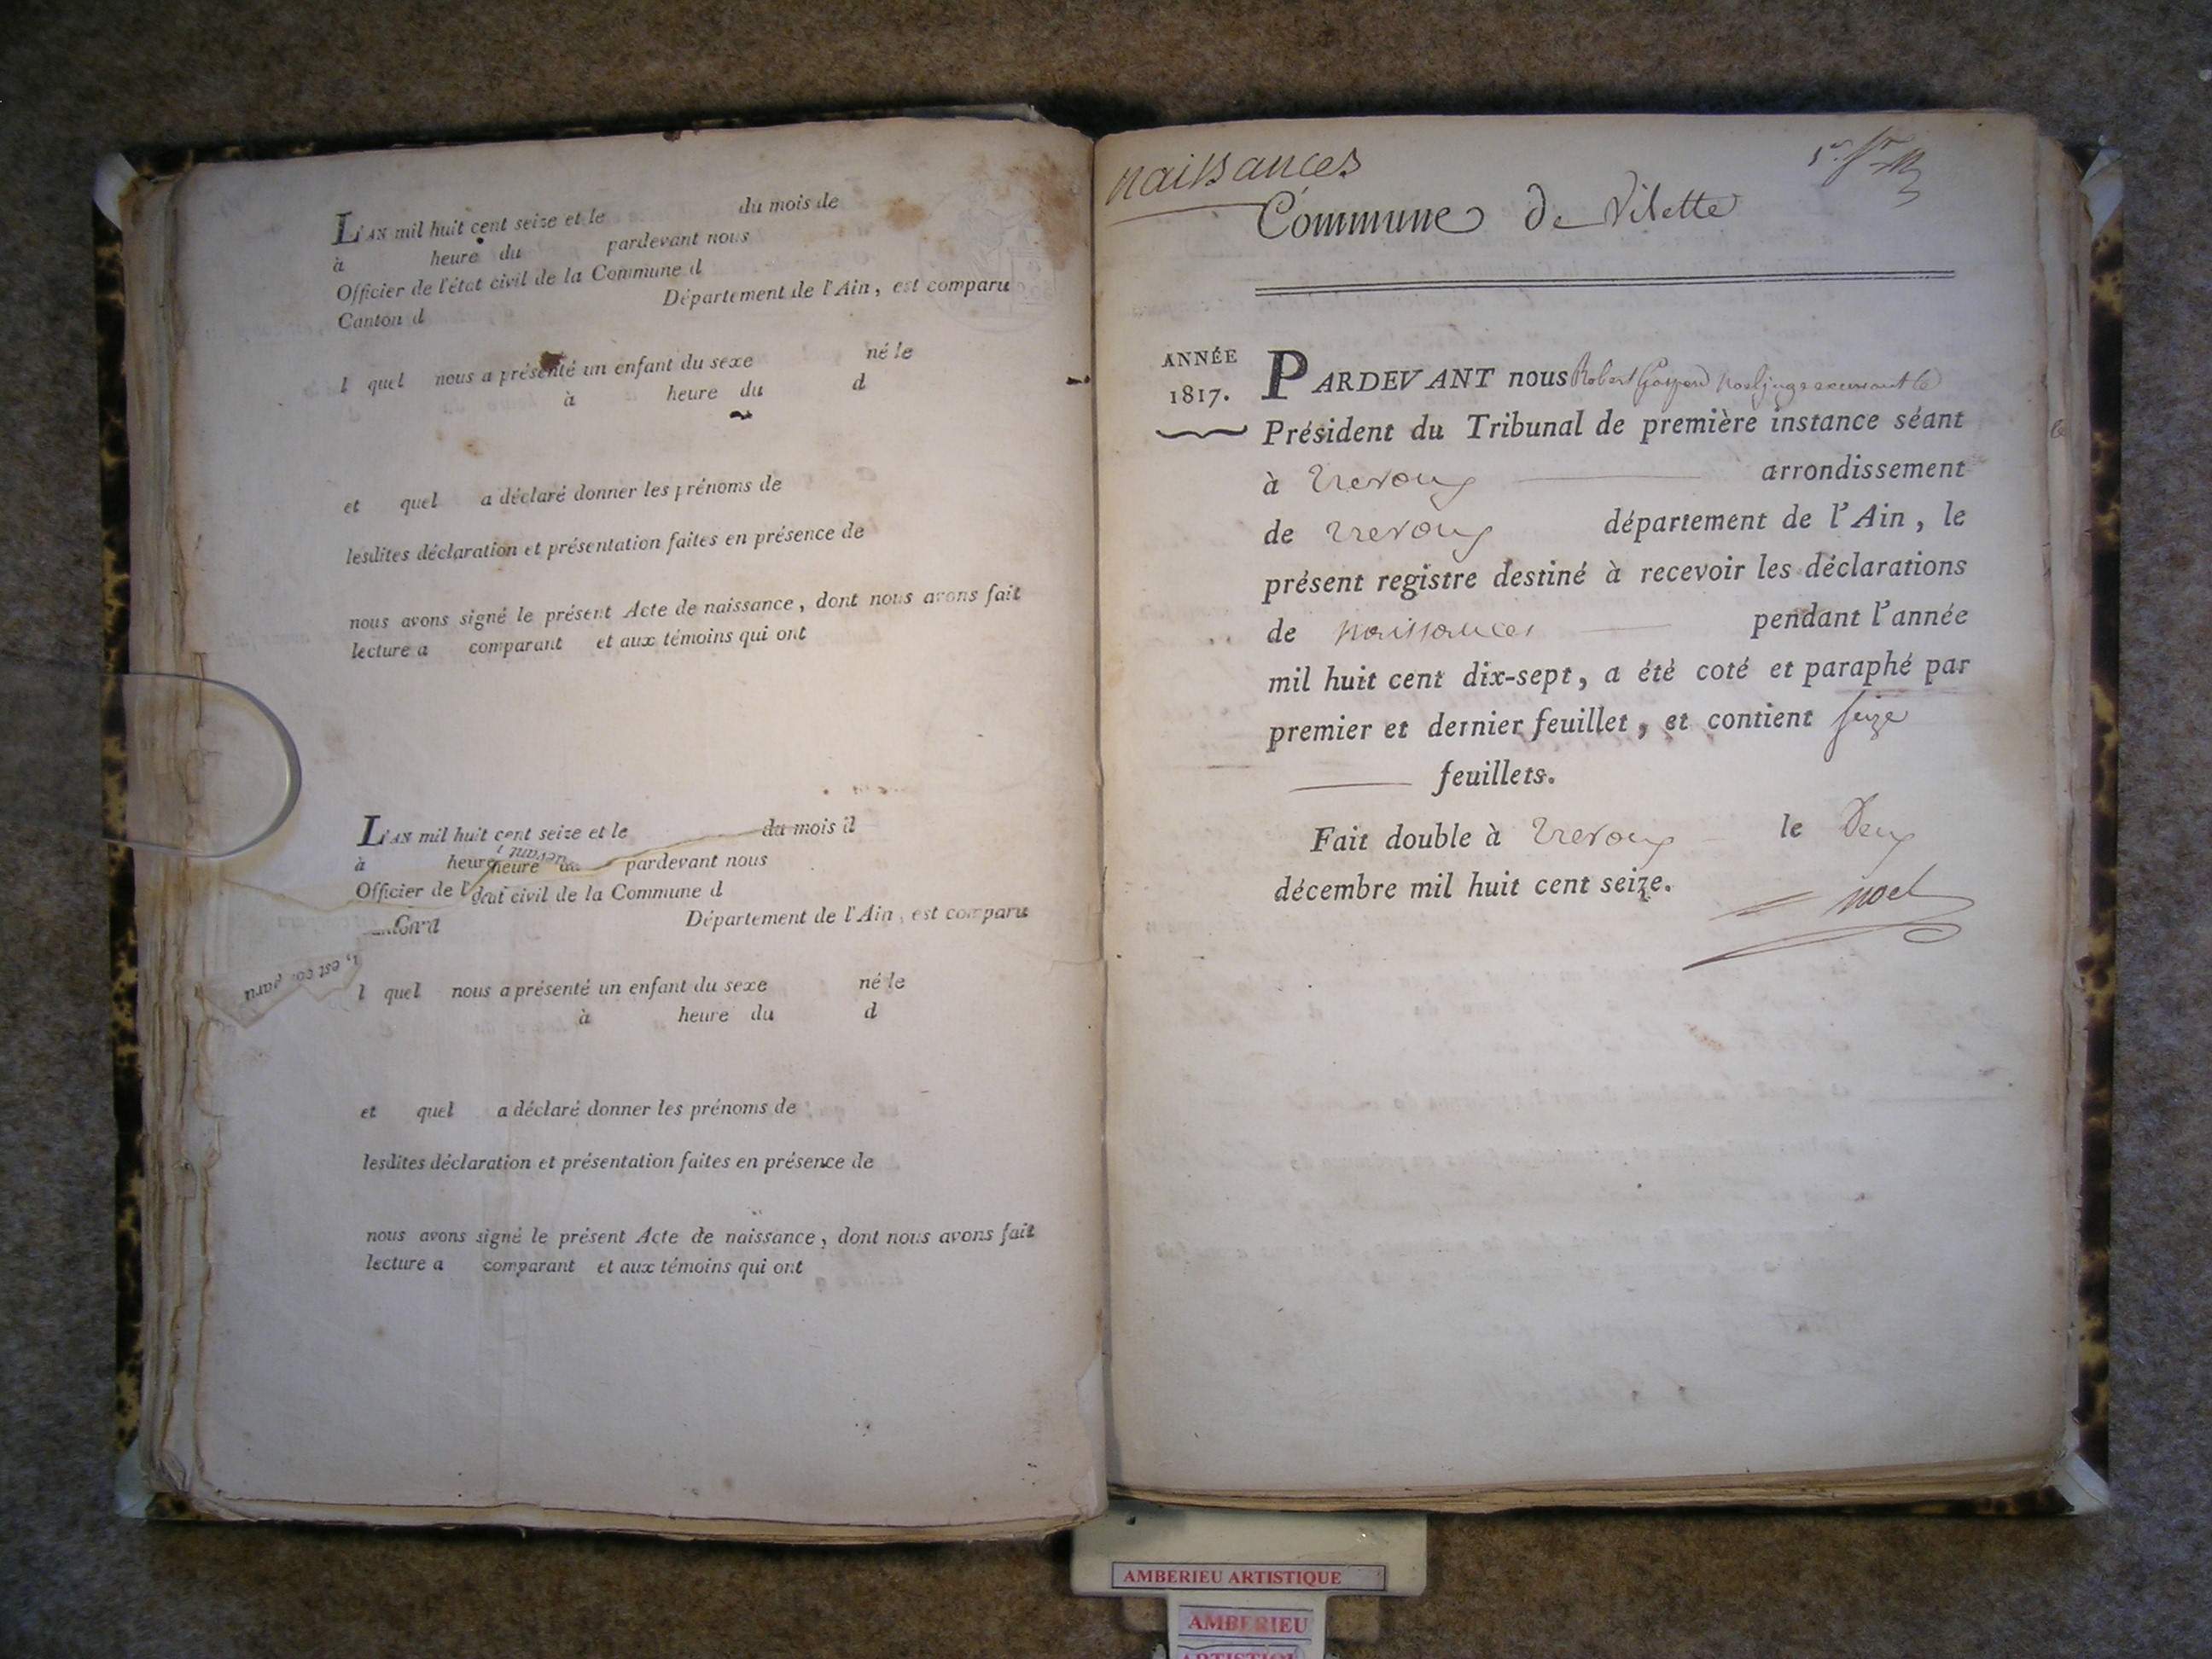 L'AN mil huit cent seize et le du mois de
à heure du pardevant nous
Officier de l'état civil de la Commune d
Canton d Département de l'Ain, est comparu
l quel nous a présenté un enfant du sexe né le
à heure du d
et quel a déclaré donner les prénoms de
lesdites déclaration et présentation faites en présence de
nous avons signé le présent Acte de naissance, dont nous avons fait
lecture a comparant et aux témoins qui ont
L'AN mil huit cent seize et le du mois d
à heure heure du pardevant nous
Officier de l'état civil de la Commune d
Canton d Département de l'Ain, est comparu
l quel nous a présenté un enfant du sexe né le
à heure du d
et quel a déclaré donner les prénoms de
lesdites déclaration et présentation faites en présence de
nous avons signé le présent Acte de naissance, dont nous avons fait
lecture a comparant et aux témoins qui ont
naissances
Commune de Vilette
ANNÉE
1817.
PARDEVANT nous Robert Gaspard Noel juge exerceant le
Président du Tribunal de première instance séant
à Trevoux arrondissement
de Trevoux département de l'Ain, le
présent registre destiné à recevoir les déclarations
de naissances pendant l'année
mil huit cent dix-sept, a été coté et paraphé par
premier et dernier feuillet, et contient seize
feuillets.
Fait double à Trevoux le Deux
décembre mil huit cent seize.
noel
AMBERIEU ARTISTIQUE
AMBERIEU
ARTISTIQUE